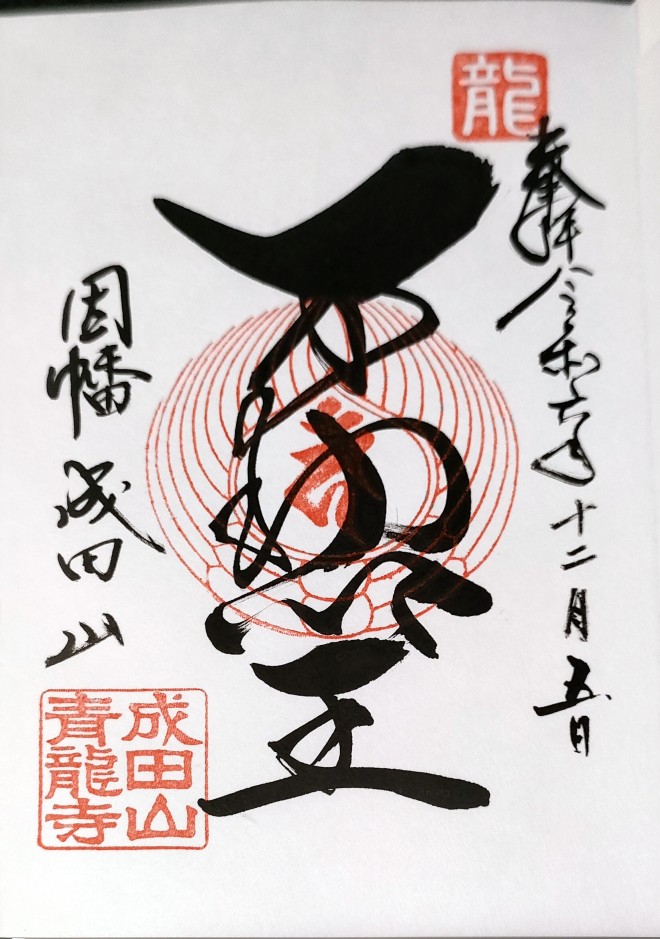 龍
奉拝 令和六年十二月五日
不動明王
因幡 成田山
成田山
青龍寺